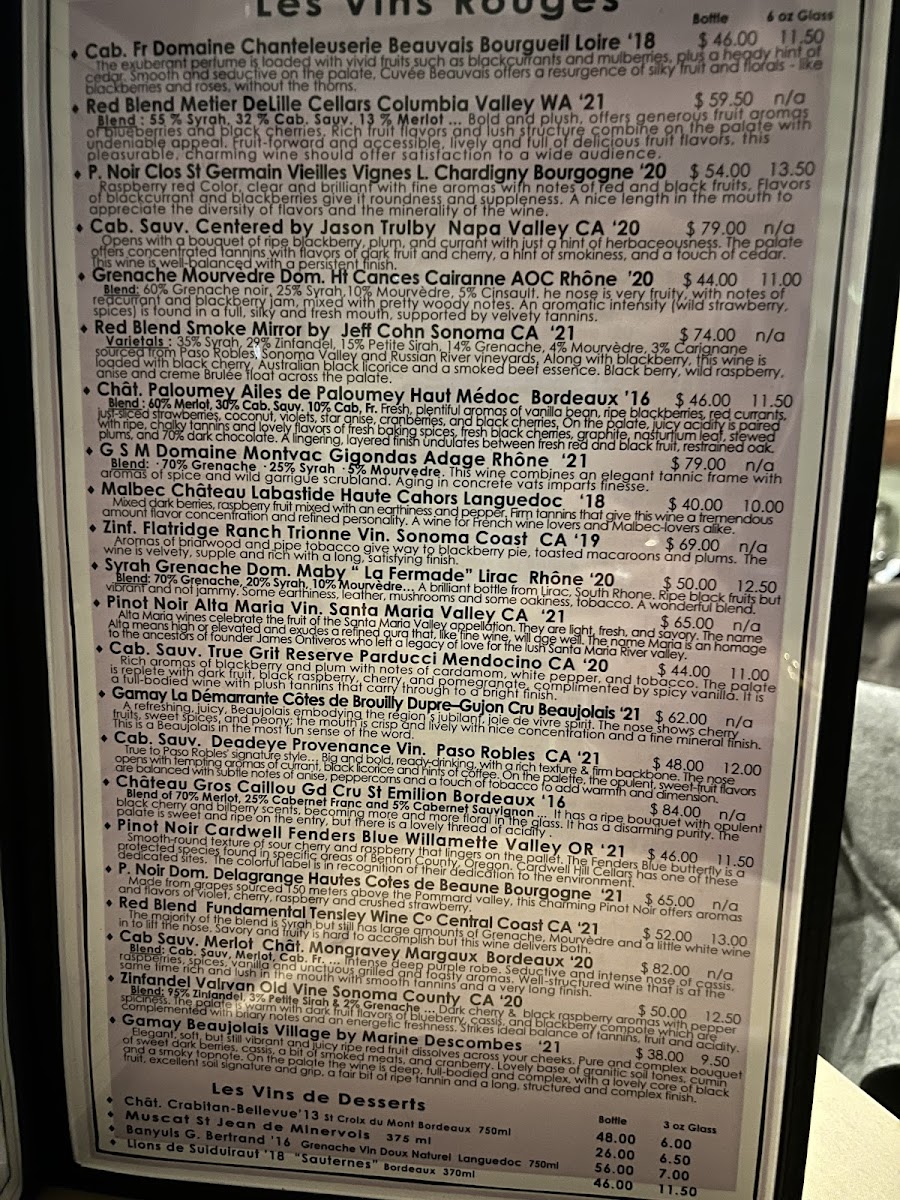 Les Vins Rouges
Bottle 6 oz Glass
• Cab. Fr Domaine Chanteleuserie Beauvais Bourgueil Loire '18 $ 46.00 11.50
The exuberant perfume is loaded with vivid fruits such as blackcurrants and mulberries, plus a heady hint of
cedar. Smooth and seductive on the palate, Cuvée Beauvais offers a resurgence of silky fruit and florals - like
blackberries and roses, without the thorns.
• Red Blend Metier DeLille Cellars Columbia Valley WA '21 $ 59.50 n/a
Blend : 55 % Syrah, 32 % Cab. Sauv. 13 % Merlot ... Bold and plush, offers generous fruit aromas
of blueberries and black cherries. Rich fruit flavors and lush structure combine on the palate with
undeniable appeal. Fruit-forward and accessible, lively and full of delicious fruit flavors, this
pleasurable, charming wine should offer satisfaction to a wide audience.
• P. Noir Clos St Germain Vieilles Vignes L. Chardigny Bourgogne '20 $ 54.00 13.50
Raspberry red Color, clear and brilliant with fine aromas with notes of red and black fruits. Flavors
of blackcurrant and blackberries give it roundness and suppleness. A nice length in the mouth to
appreciate the diversity of flavors and the minerality of the wine.
• Cab. Sauv. Centered by Jason Trulby Napa Valley CA '20 $ 79.00 n/a
Opens with a bouquet of ripe blackberry, plum, and currant with just a hint of herbaceousness. The palate
offers concentrated tannins with flavors of dark fruit and cherry, a hint of smokiness, and a touch of cedar.
This wine is well-balanced with a persistent finish.
• Grenache Mourvedre Dom. Ht Cances Cairanne AOC Rhône '20 $ 44.00 11.00
Blend: 60% Grenache noir, 25% Syrah, 10% Mourvèdre, 5% Cinsault. he nose is very fruity, with notes of
redcurrant and blackberry jam, mixed with pretty woody notes. An aromatic intensity (wild strawberry,
spices) is found in a full, silky and fresh mouth, supported by velvety tannins.
• Red Blend Smoke Mirror by Jeff Cohn Sonoma CA '21 $ 74.00 n/a
Varietals : 35% Syrah, 29% Zinfandel, 15% Petite Sirah, 14% Grenache, 4% Mourvèdre, 3% Carignane
sourced from Paso Robles, Sonoma Valley and Russian River vineyards, Along with blackberry, this wine is
loaded with black cherry, Australian black licorice and a smoked beef essence. Black berry, wild raspberry,
anise and creme Brulée float across the palate.
• Chât. Paloumey Ailes de Paloumey Haut Médoc Bordeaux '16 $ 46.00 11.50
Blend : 60% Merlot, 30% Cab. Sauv. 10% Cab, Fr. Fresh, plentiful aromas of vanilla bean, ripe blackberries, red currants,
just-sliced strawberries, coconut, violets, star anise, cranberries, and black cherries, On the palate, juicy acidity is paired
with ripe, chalky tannins and lovely flavors of fresh baking spices, fresh black cherries, graphite, nasturtium leaf, stewed
plums, and 70% dark chocolate. A lingering, layered finish undulates between fresh red and black fruit, restrained oak.
• G S M Domaine Montvac Gigondas Adage Rhône '21 $ 79.00 n/a
Blend: ·70% Grenache ·25% Syrah ·5% Mourvedre. This wine combines an elegant tannic frame with
aromas of spice and wild garrigue scrubland. Aging in concrete vats imparts finesse.
• Malbec Château Labastide Haute Cahors Languedoc '18 $ 40.00 10.00
Mixed dark berries, raspberry fruit mixed with an earthiness and pepper. Firm tannins that give this wine a tremendous
amount flavor concentration and refined personality. A wine for French wine lovers and Malbec-lovers alike.
• Zinf. Flatridge Ranch Trionne Vin. Sonoma Coast CA '19 $ 69.00 n/a
Aromas of briarwood and pipe tobacco give way to blackberry pie, toasted macaroons and plums. The
wine is velvety, supple and rich with a long, satisfying finish.
• Syrah Grenache Dom. Maby " La Fermade" Lirac Rhône '20 $ 50.00 12.50
Blend: 70% Grenache, 20% Syrah, 10% Mourvèdre... A brilliant bottle from Lirac, South Rhone. Ripe black fruits but
vibrant and not jammy. Some earthiness, leather, mushrooms and some oakiness, tobacco. A wonderful blend.
• Pinot Noir Alta Maria Vin. Santa Maria Valley CA '21 $ 65.00 n/a
Alta Maria wines celebrate the fruit of the Santa Maria Valley appellation. They are light, fresh, and savory. The name
Alta means high or elevated and exudes a refined aura that, like fine wine, will age well. The name Maria is an homage
to the ancestors of founder James Ontiveros who left a legacy of love for the lush Santa Maria River valley.
• Cab. Sauv. True Grit Reserve Parducci Mendocino CA '20 $ 44.00 11.00
Rich aromas of blackberry and plum with notes of cardamom, white pepper, and tobacco. The palate
is replete with dark fruit, black raspberry, cherry, and pomegranate, complimented by spicy vanilla. It is
a full-bodied wine with plush tannins that carry through to a bright finish.
• Gamay La Démarrante Côtes de Brouilly Dupre-Gujon Cru Beaujolais '21 $ 62.00 n/a
A refreshing, juicy, Beaujolais embodying the region's jubilant, joie de vivre spirit. The nose shows cherry
fruits, sweet spices, and peony; the mouth is crisp and lively with nice concentration and a fine mineral finish.
This is a Beaujolais in the most fun sense of the word.
• Cab. Sauv. Deadeye Provenance Vin. Paso Robles CA '21 $ 48.00 12.00
True to Paso Robles' signature style... Big and bold, ready-drinking, with a rich texture & firm backbone. The nose
opens with tempting aromas of currant, black licorice and hints of coffee. On the palette, the opulent, sweet-fruit flavors
are balanced with subtle notes of anise, peppercorns and a touch of tobacco to add warmth and dimension.
• Château Gros Caillou Gd Cru St Emilion Bordeaux '16 $ 84.00 n/a
Blend of 70% Merlot, 25% Cabernet Franc and 5% Cabernet Sauvignon ... It has a ripe bouquet with opulent
black cherry and bilberry scents, becoming more and more floral in the glass. It has a disarming purity. The
palate is sweet and ripe on the entry, but there is a lovely thread of acidity .
• Pinot Noir Cardwell Fenders Blue Willamette Valley OR '21 $ 46.00 11.50
Smooth-round texture of sour cherry and raspberry that lingers on the pallet. The Fenders Blue butterfly is a
protected species found in specific areas of Benton County, Oregon. Cardwell Hill Cellars has one of these
dedicated sites. The colorful label is in recognition of their dedication to the environment.
• P. Noir Dom. Delagrange Hautes Cotes de Beaune Bourgogne '21 $ 65.00 n/a
Made from grapes sourced 150 meters above the Pommard valley, this charming Pinot Noir offers aromas
and flavors of violet, cherry, raspberry and crushed strawberry.
• Red Blend Fundamental Tensley Wine Co Central Coast CA '21 $ 52.00 13.00
The majority of the blend is Syrah but still has large amounts of Grenache, Mourvèdre and a little white wine
in to lift the nose. Savory and fruity is hard to accomplish but this wine delivers both.
• Cab Sauv. Merlot Chât. Mongravey Margaux Bordeaux '20 $ 82.00 n/a
Blend: Cab. Sauv, Merlot, Cab. Fr. ... Intense deep purple robe. Seductive and intense nose of cassis,
raspberries, spices, vanilla and unctuous grilled and toasty aromas. Well-structured wine that is at the
same time rich and lush in the mouth with smooth tannins and a very long finish.
• Zinfandel Valrvan Old Vine Sonoma County CA '20 $ 50.00 12.50
Blend: 95% Zinfandel, 3% Petite Sirah & 2% Grenache ... Dark cherry & black raspberry aromas with pepper
spiciness. The palate is warm with dark fruit flavors of blueberry, cassis, and blackberry compote which are
complemented with briary notes and an energetic freshness. Strikes ideal balance of tannins, fruit and acidity.
• Gamay Beaujolais Village by Marine Descombes '21 $ 38.00 9.50
Elegant, soft, but still vibrant and juicy ripe red fruit dissolves across your cheeks. Pure and complex bouquet
of sweet dark berries, cassis, a bit of smoked meats, and cranberry. Lovely base of granitic soil tones, cumin
and a smoky topnote. On the palate the wine is deep, full-bodied and complex, with a lovely core of black
fruit, excellent soil signature and grip, a fair bit of ripe tannin and a long, structured and complex finish.
Les Vins de Desserts
Bottle 3 oz Glass
• Chât. Crabitan-Bellevue'13 St Croix du Mont Bordeaux 750ml 48.00 6.00
• Muscat St Jean de Minervois 375 ml 26.00 6.50
• Banyuls G. Bertrand '16 Grenache Vin Doux Naturel Languedoc 750ml 56.00 7.00
• Lions de Suiduiraut '18 "Sauternes" Bordeaux 370ml 46.00 11.50